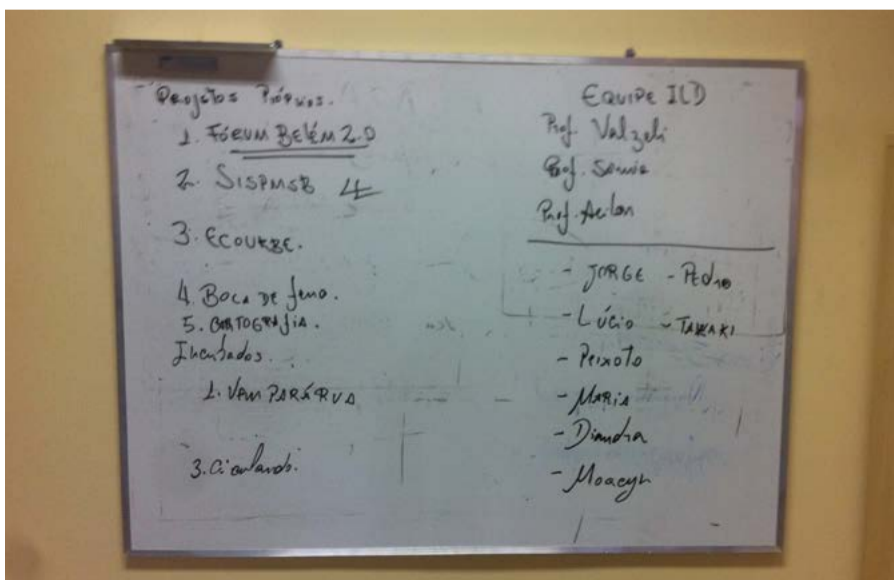 Projetos Próprios.
1. FÓRUM BELÉM 2.0
2. SISPMSB 4
3. ECOURBE.
4. BOCA DE ferro.
5. CARTOGRAfiA.
Incubados.
1. VEM PARÁ RUA
3. Circulando.
EQUIPE ILD
Prof. Valzeli
Prof. Samia
Prof. Acilon
- JORGE - PEDRO
- LÚCIO - TAWAKI
- PEIXOTO
- MARIA
- Diandra
- Moacyr